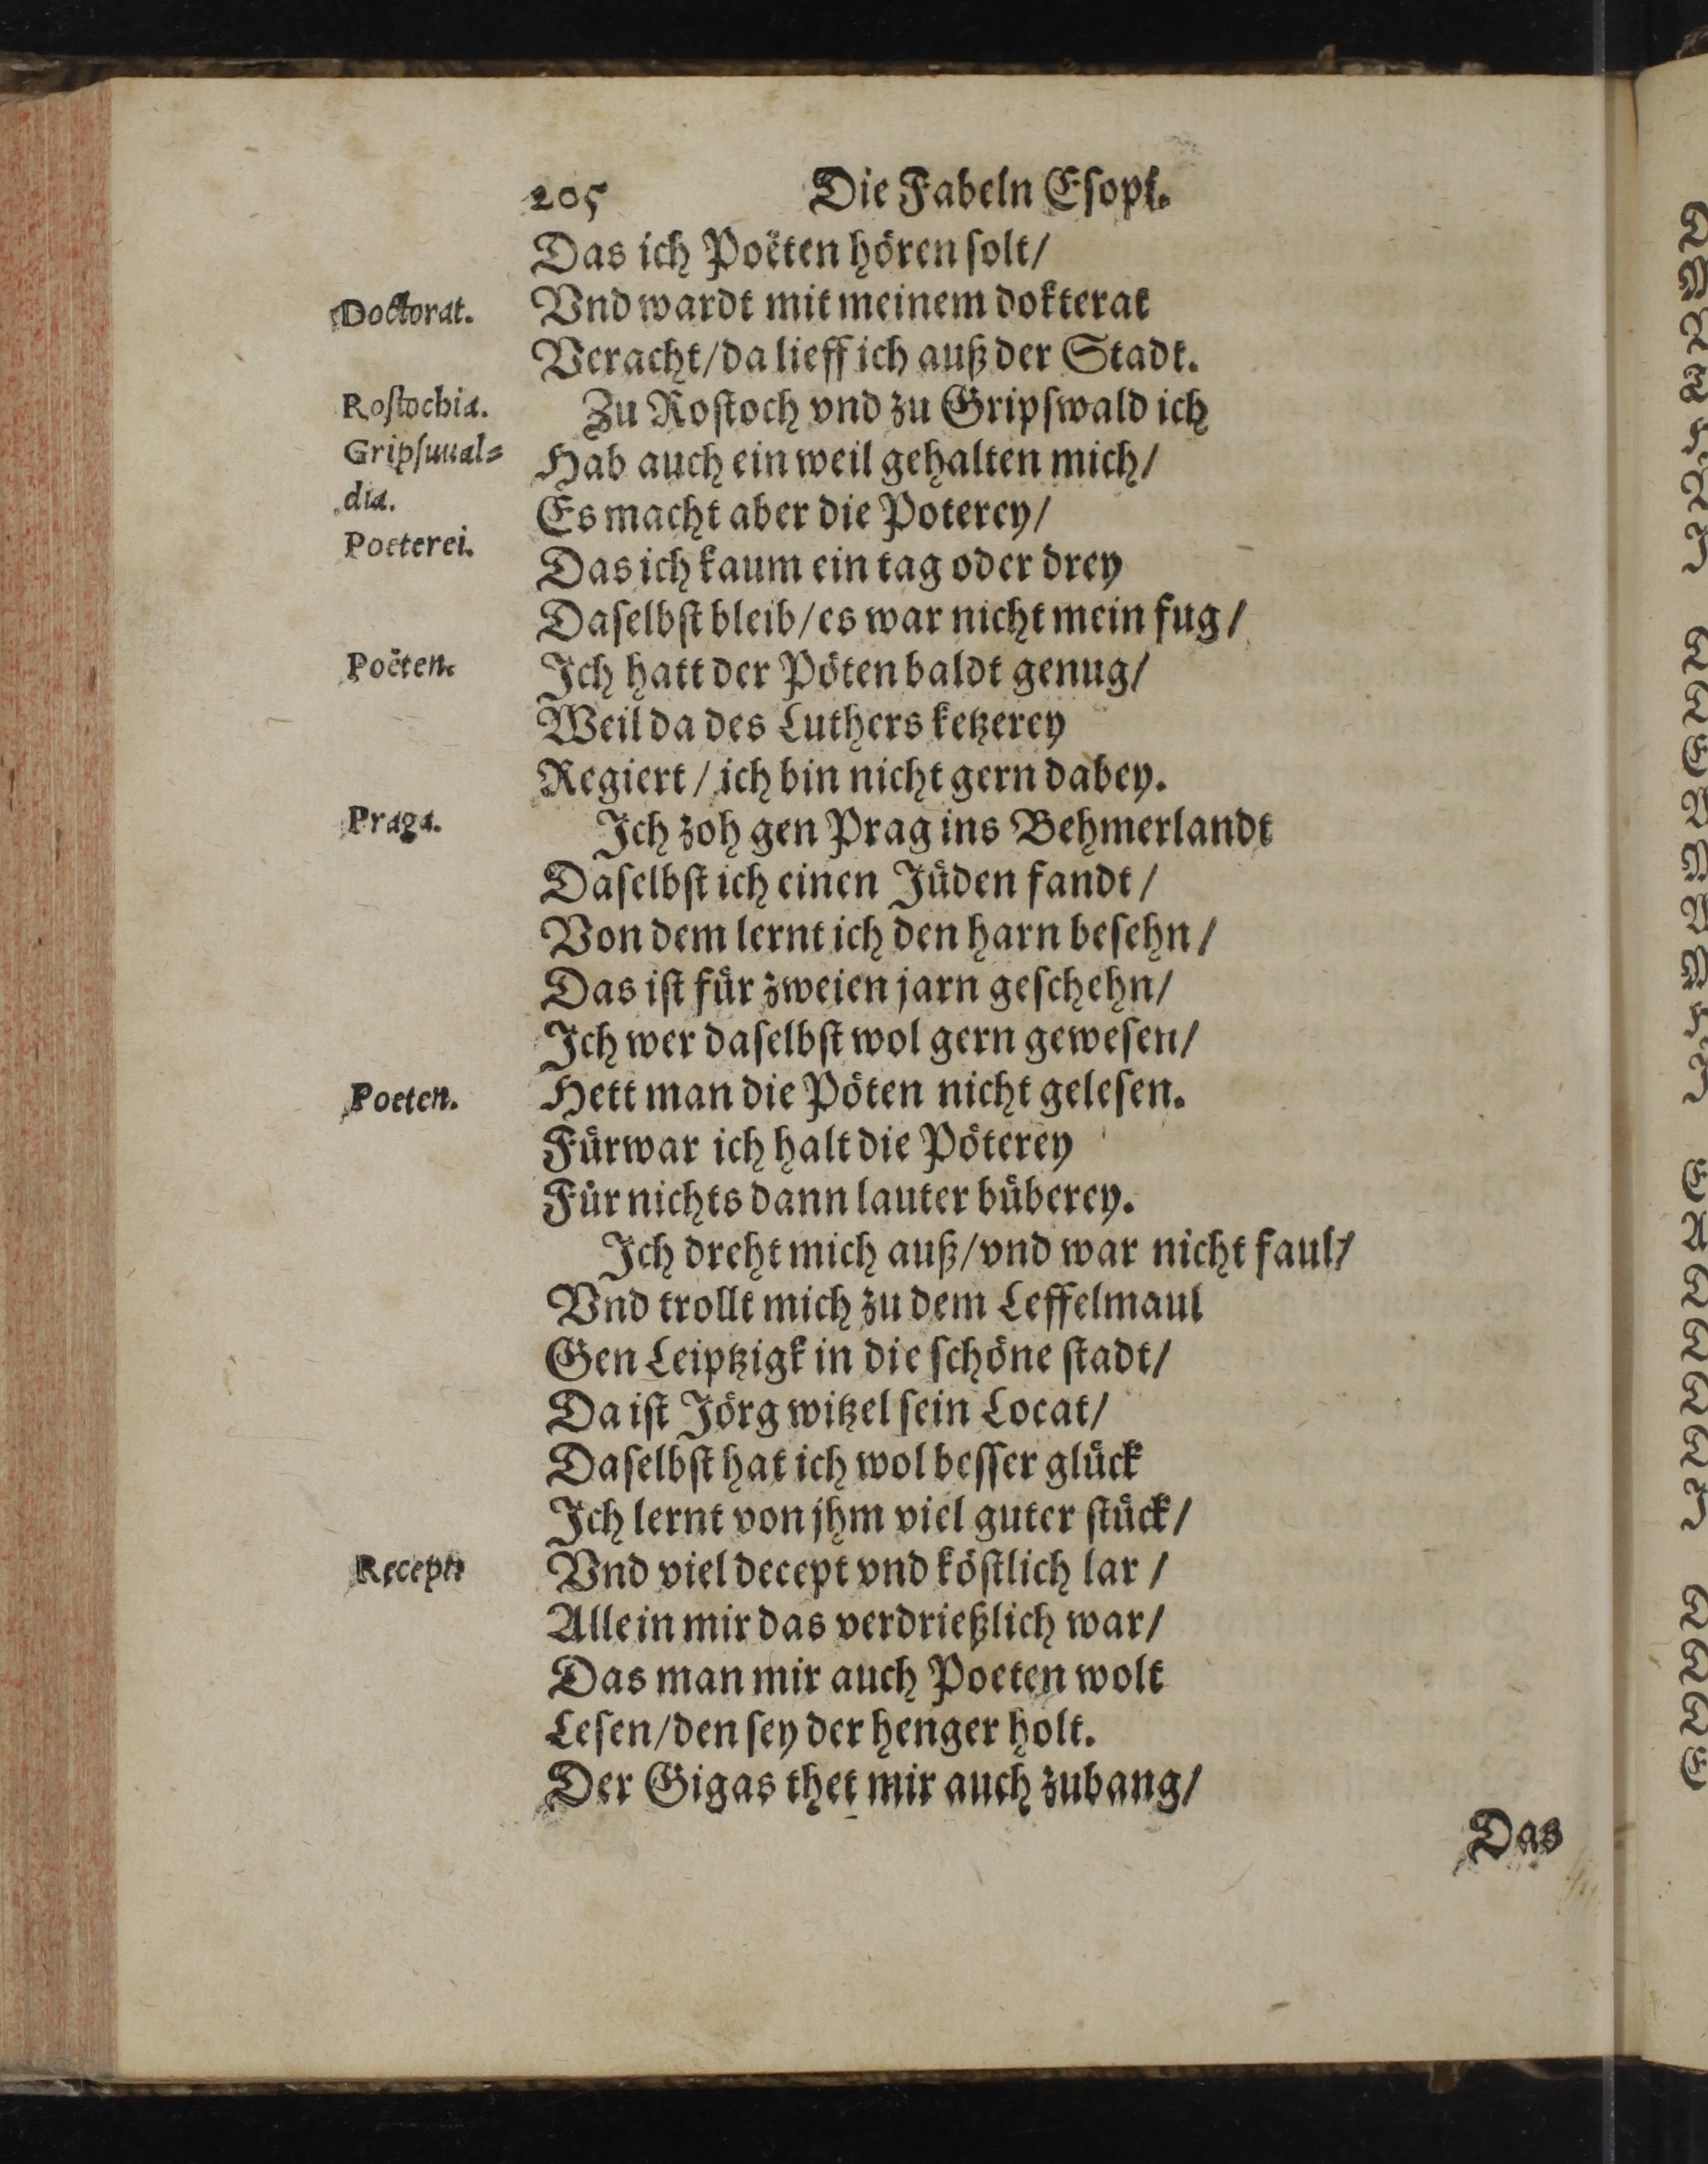 205 Die Fabeln Esopi.
Das ich Poëten hören solt/
Doctorat.
Vnd wardt mit meinem dokterat
Veracht/da lieff ich auß der Stadt.
Rostochia.
Zu Rostoch vnd zu Gripswald ich
Gripsuual=
Hab auch ein weil gehalten mich/
dia.
Es macht aber die Poterey/
Poeterei.
Das ich kaum ein tag oder drey
Daselbst bleib/es war nicht mein fug/
Poëten.
Ich hatt der Pöten baldt genug/
Weil da des Luthers ketzerey
Regiert/ich bin nicht gern dabey.
Praga.
Ich zoh gen Prag ins Behmerlandt
Daselbst ich einen Jüden fandt/
Von dem lernt ich den harn besehn/
Das ist für zweien jarn geschehn/
Ich wer daselbst wol gern gewesen/
Poeten.
Hett man die Pöten nicht gelesen.
Fürwar ich halt die Pöterey
Für nichts dann lauter büberey.
Ich dreht mich auß/vnd war nicht faul/
Vnd trollt mich zu dem Leffelmaul
Gen Leiptzigk in die schöne stadt/
Da ist Jörg witzel sein Locat/
Daselbst hat ich wol besser glück
Ich lernt von jhm viel guter stück/
Recept
Vnd viel decept vnd köstlich lar/
Allein mir das verdrießlich war/
Das man mir auch Poeten wolt
Lesen/den sey der henger holt.
Der Gigas thet mir auch zubang/
Das